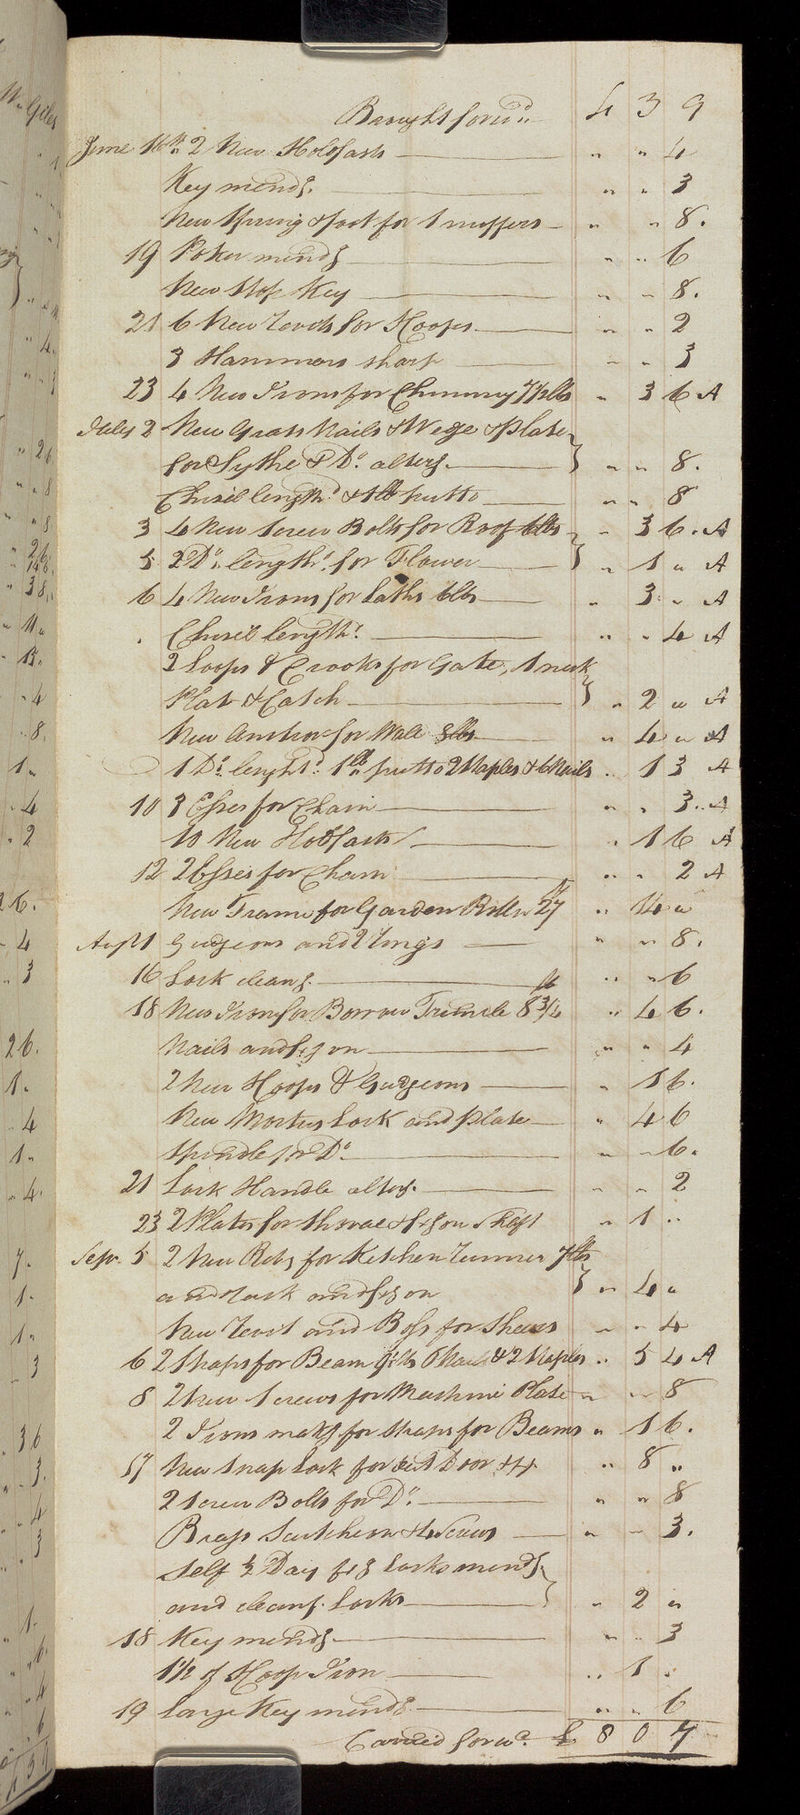 Brought forwd. 4 3 9
June 16th. 2 New Holdfasts " " 4
Key mendg. " " 3
New Spring & foot for Snuffers " " 8.
19 Poker mendg " " 6
New Stop Key " " 8.
21 6 New rivets for Hoops " " 2
3 Hammers sharp " " 3
23 4 New Irons for Chimney 7½lbs " 3 6 A
July 2 New Grass Nails & Wege & plate
for Sythe & Do. alterg. " " 8.
Chisel lengthd. & 1lb putto " " 8
3 4 New Screw Bolts for Roof 6lbs " 3 6. A
5 2 Do. lengthd. for Flower " 1 " A
6 4 New Irons for Laths 6lbs " 3 " A
Chisel lengthd. " " 4 A
2 Loops & Crooks for Gate, 1 neck
Plat & Catch " 2 " A
New Anchor for Wall 8lbs " 4 " A
1 Do. lengthd. 1lb putto 2 Staples & 6 Nails " 1 3 A
10 3 Esses for Chain " " 3 " A
10 New Holdfasts " 1 6 A
12 2 Esses for Chain " " 2 A
New Frame for Garden Roller 27 lb " 14 "
Augt 1 Gudgeons and 2 rings " " 8.
16 Lock cleang. " " 6
18 New Iron for Borrow Trimile 8¾ lb " 4 6.
Nails and fixg on " " 4
2 New Hoops & Gudgeons " 1 6.
New Mortus Lock and plate " 4 6
Spindle for Do. " " 6.
21 Lock Handle alterg. " " 2
23 2 Plates for & fixg on Shaft " 1 "
Sepr. 5 2 New Ribs for Kitchen 7lbs
and and fixg on " 4 "
New rivet and Boss for Shears " " 4
6 2 Straps for Beam 9lbs 6 Nails & 2 Staples " 5 4 A
8 2 New Screws for Mashine Plate " " 8
2 Irons makg for straps for Beams " 1 6.
17 New Snap Lock for Door " 8 "
2 Screw Bolts for Do. " " 8
Brass Scutcheon & 4 Screws " " 3.
Self ½ Day fixg Locks mendg
and cleang. Locks " 2 "
18 Key mendg " " 3
1½ of Hoop Iron " 1 "
19 Large Key mendg " " 6
Carried forwd. £ 8 0 7